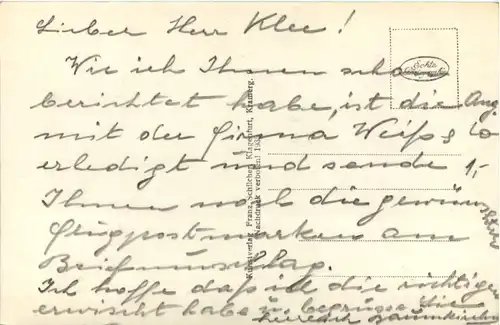 Lieber Herr Klee!
Wie ich Ihnen scho
berichtet habe, ist die Ang
mit der Firma Weiss & Co
erledigt und sende 1,-
Ihnen noch die gewüns
Flugpostmarken am
Briefumschlag.
Ich hoffe daß ich die richtigen
erwischt habe u. begrüsse Sie
Kunstverlag Franz Schilcher, Klagenfurt,
Nachdruck verboten!
Echte